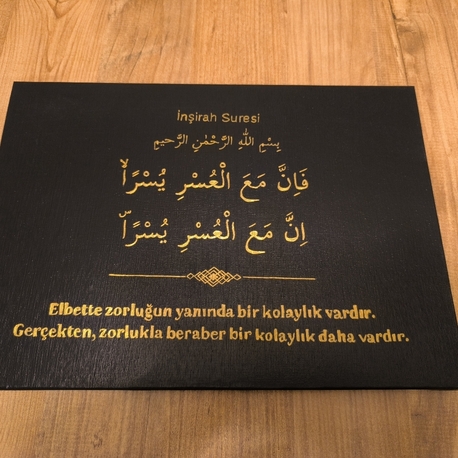 İnşirah Suresi
بِسْمِ اللّٰهِ الرَّحْمٰنِ الرَّحِيمِ
فَاِنَّ مَعَ الْعُسْرِ يُسْرًاۙ
اِنَّ مَعَ الْعُسْرِ يُسْرًاۜ
Elbette zorluğun yanında bir kolaylık vardır.
Gerçekten, zorlukla beraber bir kolaylık daha vardır.